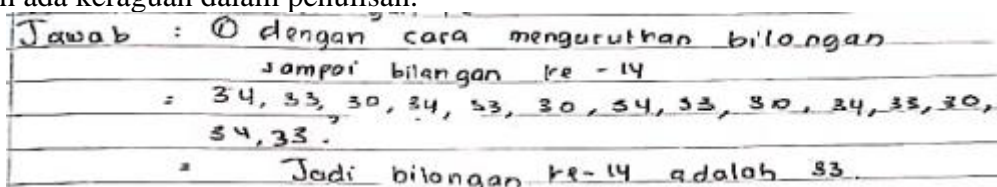 ada keraguan dalam penulisan.
Jawab : ① dengan cara mengurutkan bilongan
sampai bilangan ke - 14
= 34, 33, 30, 34, 33, 30, 34, 33, 30, 34, 33, 30,
34, 33.
= Jadi bilangan ke-14 adalah 33.